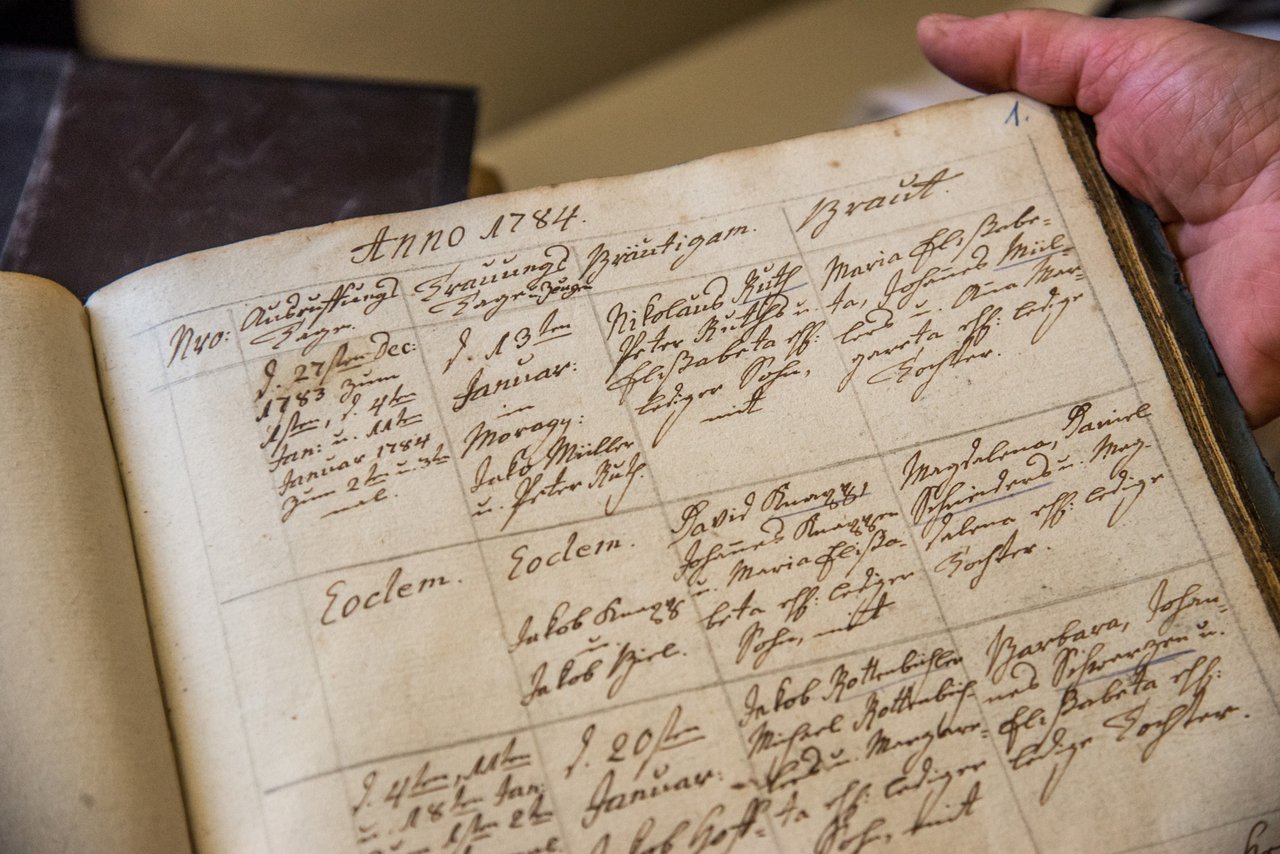 1.
Anno 1784.
Nro:
Ausruffungs
Tage.
Trauungs
Tage u. Zeugen
Bräutigam.
Braut.
d. 27sten Dec:
1783 zum
1sten, d. 4ten
Jan: u. 11ten
Januar 1784
zum 2t u. 3t
mal.
d. 13ten
Januar:
Jakob Müller
u. Peter Ruth.
Nikolaus Ruth
Peter Ruths u.
Elisabeta ehl:
lediger Sohn,
mit
Maria Elisabe-
ta, Johannes Mül-
lers u. Anna Mar-
gareta ehl: ledige
Tochter.
Eodem.
Eodem.
Jakob
u.
Jakob
David
Johannes
u. Maria Elisa-
beta ehl: lediger
Sohn, mit
Magdalena, Daniel
Schneiders u. Mag-
dalena ehl: ledige
Tochter.
d. 4ten, 11ten
u. 18ten Jan:
1sten 2ten
d. 20sten
Januar:
Jakob Hoff-
Jakob Rottenbühler
Michael Rottenbüh-
lers u. Margare-
ta ehl: lediger
Sohn, mit
Barbara, Johan-
nes Schwerzen u.
Elisabeta ehl:
ledige Tochter.